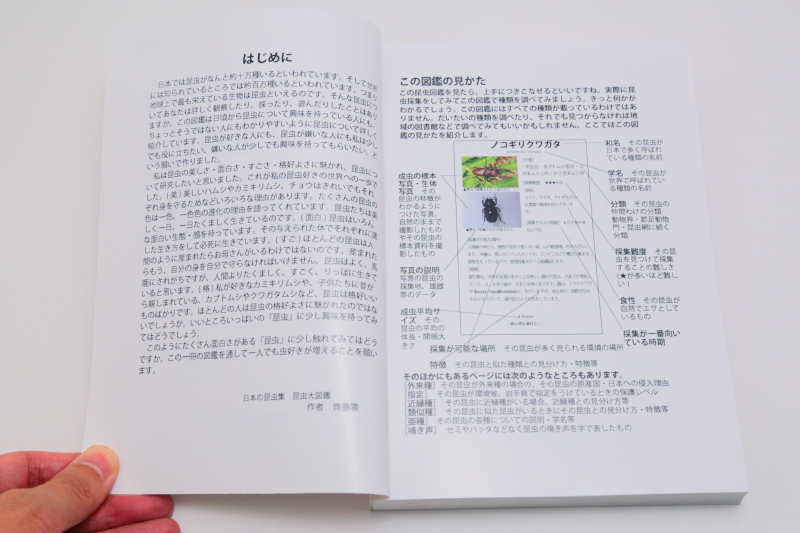 はじめに
日本では昆虫がなんと約十万種いるといわれています。そして世界
には知られているところでは約百万種いるといわれています。つまり
地球上で最も栄えている生物は昆虫といえるのです。そんな昆虫に
ついてあなたは詳しく観察したり、採ったり、遊んだりしたことはあり
ますか。この図鑑は日頃から昆虫について興味を持っている人にも、
ちょっとそうではない人にもわかりやすいように昆虫について詳しく
紹介しています。昆虫が好きな人にも、昆虫が嫌いな人にも私は少し
でも役に立ちたい、嫌いな人が少しでも興味を持ってもらいたい、と
いう願いで作りました。
私は昆虫の美しさ・面白さ・すごさ・格好よさに魅かれ、昆虫につ
いて研究したいと思いました。これが私の昆虫好きの世界への一歩で
した。(美)美しいハムシやカミキリムシ、チョウはきれいでもそれ
ぞれ身を守るためなどいろいろな理由があります。たくさんの昆虫の
色は一色、一色色の進化の理由を語ってくれています。昆虫たちは美
しく一日、一日たくましく生きているのです。(面白)昆虫はいろん
な面白い生態・顔を持っています。その与えられた体でそれぞれに適
した生き方をして必死に生きています。(すご)ほとんどの昆虫は人
間のように産まれたらお母さんがいるわけではないのです。産まれた
らもう、自分の身を自分で守らなければいけません。昆虫はよく、馬
鹿にされがちですが、人間よりたくましく、すごく、りっぱに生きて
いると思います。(格)私が好きなカミキリムシや、子供たちに昔か
ら親しまれている、カブトムシやクワガタムシなど、昆虫は格好いい
ものばかりです。ほとんどの人は昆虫の格好よさに魅かれたのではな
いでしょうか。いいところいっぱいの「昆虫」に少し興味を持ってみ
てはどうでしょう。
このようにたくさん面白さがある「昆虫」に少し触れてみてはどう
ですか。この一冊の図鑑を通して一人でも虫好きが増えることを願い
ます。
日本の昆虫集 昆虫大図鑑
作者 齊藤零
この図鑑の見かた
この昆虫図鑑を見たら、上手につきこなせるといいですね。実際に昆
虫採集をしてみてこの図鑑で種類を調べてみましょう。きっと何かが
わかるでしょう。この図鑑にはすべての種類が載っているわけではあ
りません。だいたいの種類を調べたり、それでも見つからなければ地
域の図書館などで調べてみてもいいかもしれません。ここではこの図
鑑の見かたを紹介します。
ノコギリクワガタ
成虫の標本
写真・生体
写真 その昆
虫の特徴が
わかるように
つけた写真。
自然のままで
撮影したもの
やその昆虫の
標本資料を撮
影したもの
写真の説明
写真の昆虫の
採集地、雄雌
等のデータ
成虫平均サ
イズ その昆
虫の平均の
体長・開張大
きさ
和名 その昆虫が
日本で多く呼ばれ
ている種類の名前
学名 その昆虫が
世界で呼ばれてい
る種類の名前
分類 その昆虫の
仲間わけの分類
動物界・節足動物
門・昆虫綱に続く
分類
採集難度 その昆
虫を見つけて採集
することの難しさ
(★が多いほど難しい)
食性 その昆虫が
自然でエサとして
いるもの
採集が一番向いて
いる時期
採集が可能な場所 その昆虫が多く見られる環境の場所
特徴 その昆虫と似た種類との見分け方・特徴等
そのほかにもあるページには次のようなところもあります。
[外来種] その昆虫が外来種の場合の、その昆虫の原産国・日本への侵入理由
[指定] その昆虫が環境省、岩手県で指定をうけているときの保護レベル
[近縁種] その昆虫に近縁種がいる場合、近縁種との見分け方等
[類似種] その昆虫に似た昆虫がいるときにその昆虫との見分け方・特徴等
[亜種] その昆虫の亜種についての説明・学名等
[鳴き声] セミやバッタなどなく昆虫の鳴き声を字で表したもの